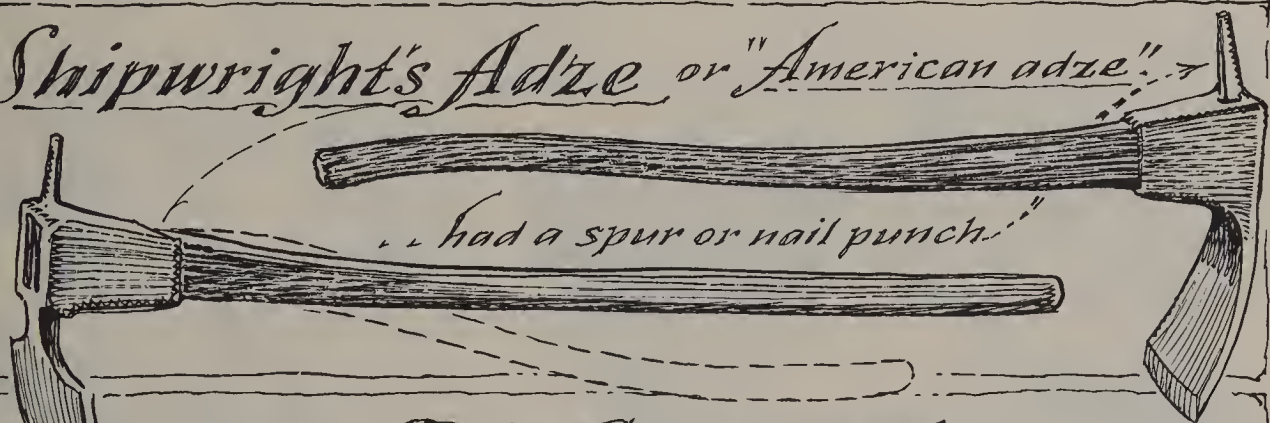 Shipwright's Adze or "American adze"
... had a spur or nail punch